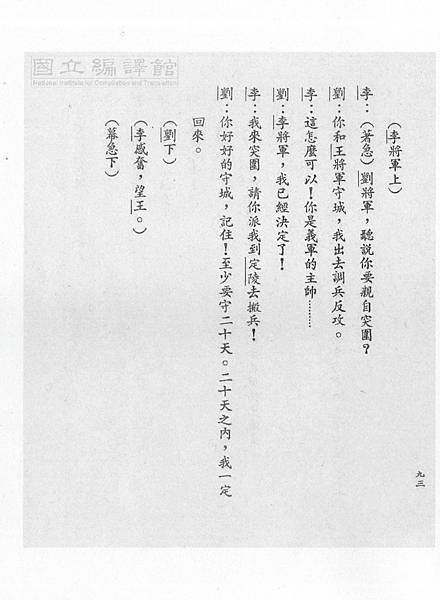 國立編譯館
National Institute for Compilation and Translation
（李將軍上）
李：（著急）劉將軍，聽說你要親自突圍？
劉：你和王將軍守城，我出去調兵反攻。
李：這怎麼可以！你是義軍的主帥………
劉：李將軍，我已經決定了！
李：我來突圍，請你派我到定陵去搬兵！
劉：你好好的守城，記住！至少要守二十天。二十天之內，我一定
回來。
（劉下）
（李感奮，望王。）
（幕急下）
九三